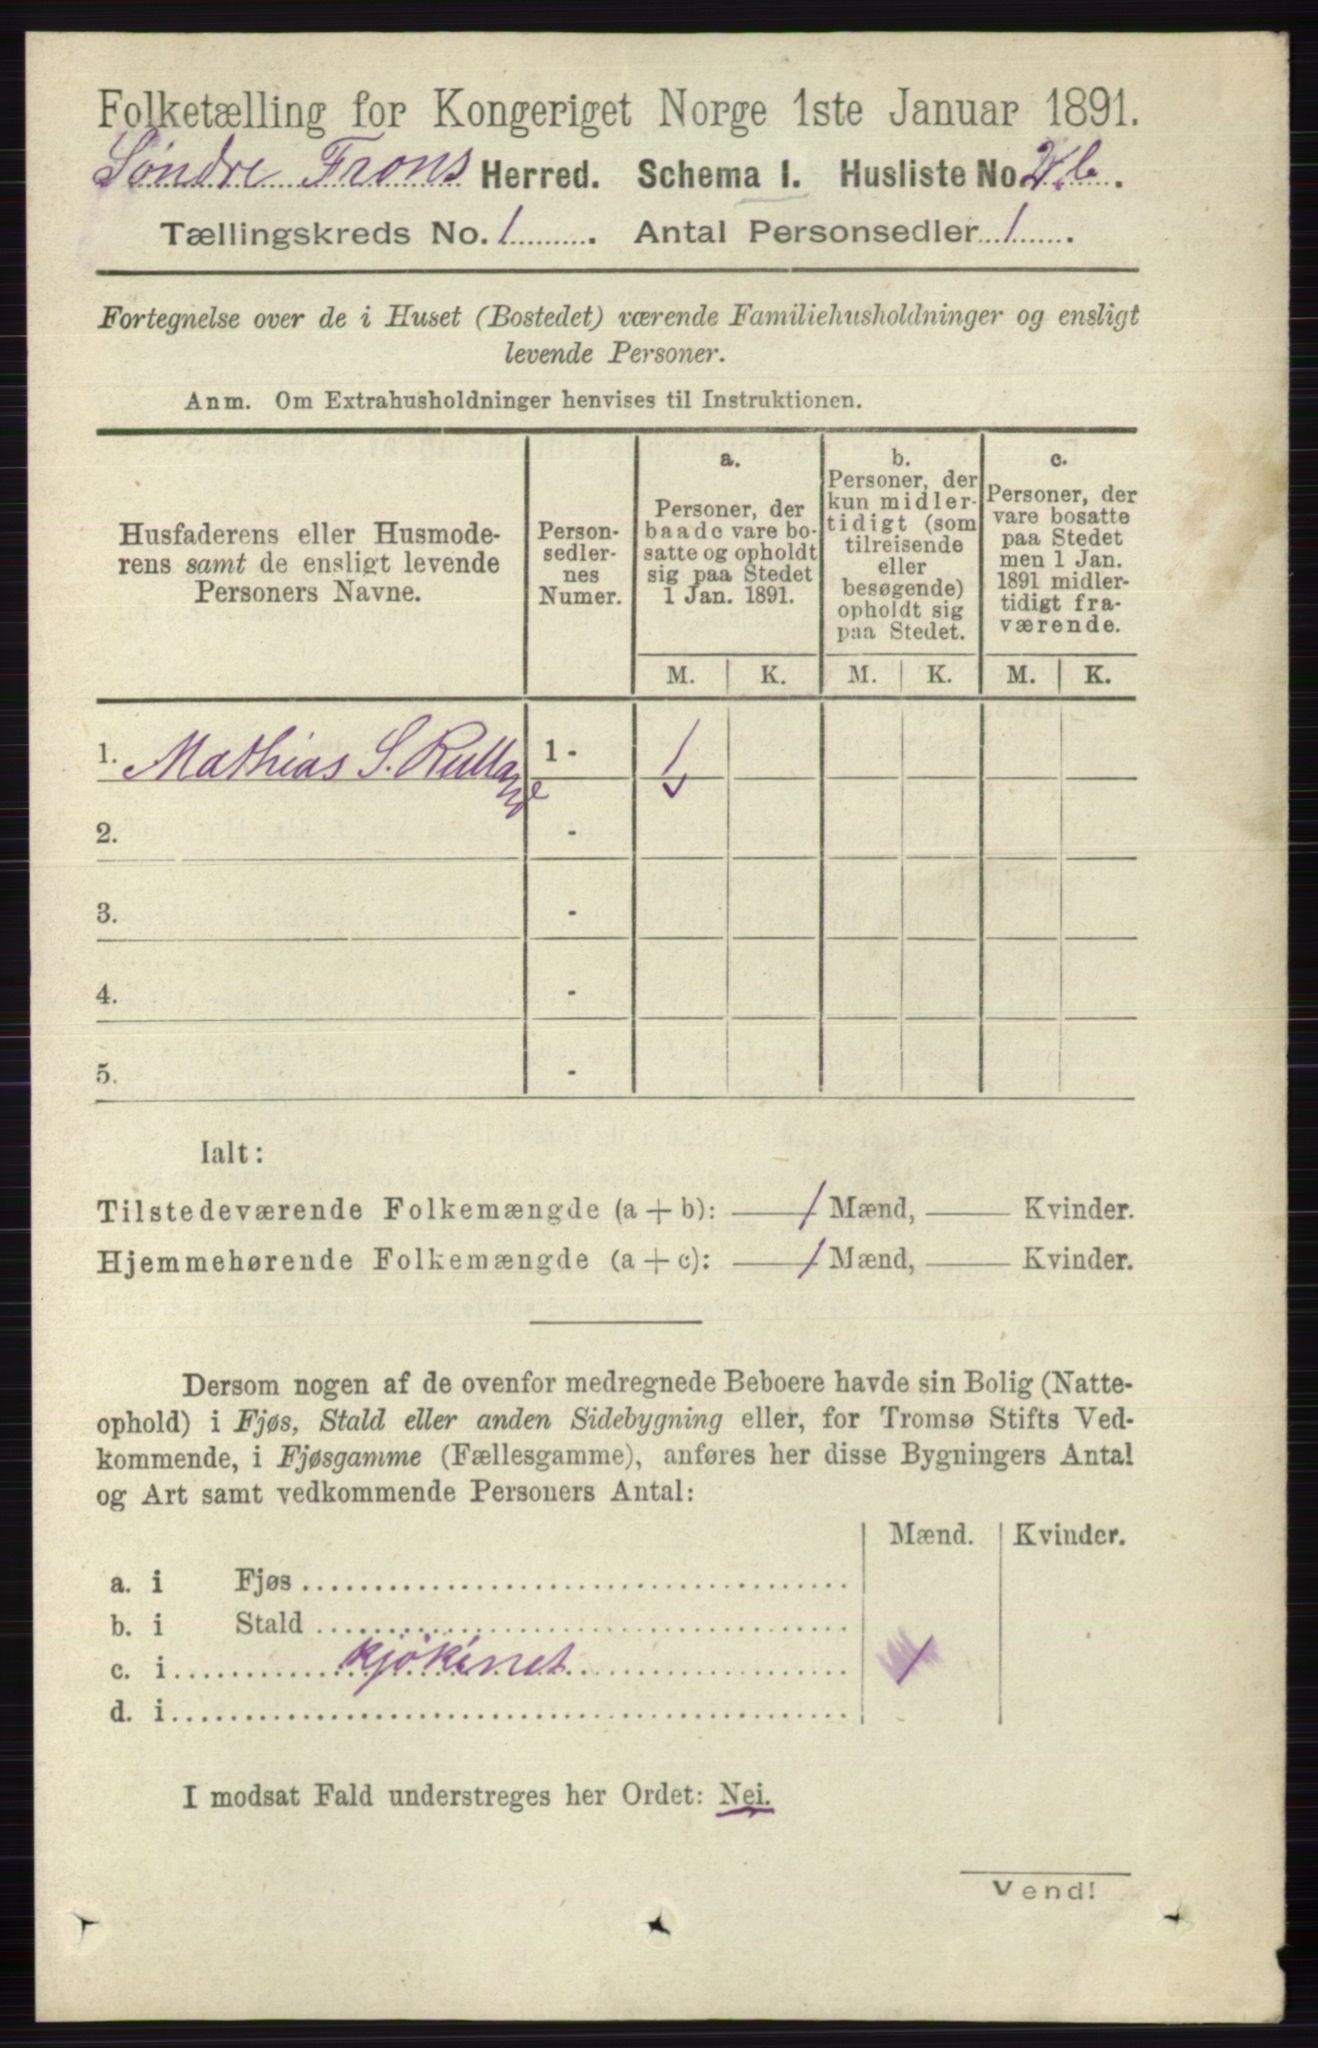 Folketælling for Kongeriget Norge 1ste Januar 1891.
Søndre Frons Herred. Schema 1. Husliste No.
Tællingskreds No. 1 . Antal Personsedler 1 .
Fortegnelse over de i Huset (Bostedet) værende Familiehusholdninger og ensligt
levende Personer.
Anm. Om Extrahusholdninger henvises til Instruktionen.
Husfaderens eller Husmode-
rens samt de ensligt levende
Personers Navne.
Person-
sedler-
nes
Numer.
a.
Personer, der
baade vare bo-
satte og opholdt
sig paa Stedet
1 Jan. 1891.
b.
Personer, der
kun midler-
tidigt (som
tilreisende
eller
besøgende)
opholdt sig
paa Stedet.
c.
Personer, der
vare bosatte
paa Stedet
men 1 Jan.
1891 midler-
tidigt fra-
værende.
M. K. M. K. M. K.
1. Mathias S. Rullande 1 - 1
2. -
3. -
4. -
5. -
Ialt:
Tilstedeværende Folkemængde (a + b): 1 Mænd, Kvinder.
Hjemmehørende Folkemængde (a + c): 1 Mænd, Kvinder.
Dersom nogen af de ovenfor medregnede Beboere havde sin Bolig (Natte-
ophold) i Fjøs, Stald eller anden Sidebygning eller, for Tromsø Stifts Ved-
kommende, i Fjøsgamme (Fællesgamme), anføres her disse Bygningers Antal
og Art samt vedkommende Personers Antal:
Mænd. Kvinder.
a. i Fjøs
b. i Stald
c. i kjøkinet 1
d. i
I modsat Fald understreges her Ordet: Nei.
Vend!